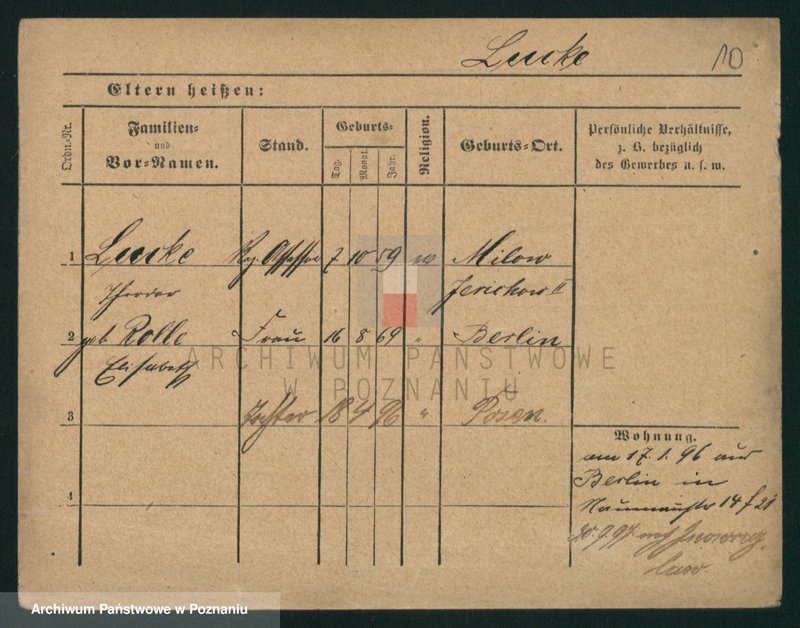 Lucke 10
Eltern heißen:
Ordn.-Nr. Familien- und Vor-Namen. Stand. Geburts- Tag. Monat. Jahr. Religion. Geburts-Ort. Persönliche Verhältnisse, z. B. bezüglich des Gewerbes u. s. w.
1 Lucke Reg. Assessor 7 10 59 Milow
Theodor Jerichow II
2 geb. Rolle Frau 16 8 69 " Berlin
Elisabeth
ARCHIWUM PAŃSTWOWE
W POZNANIU
3 Tochter 18 4 96 " Posen.
Wohnung.
am 17.1.96 aus
Berlin in
14
4
Archiwum Państwowe w Poznaniu